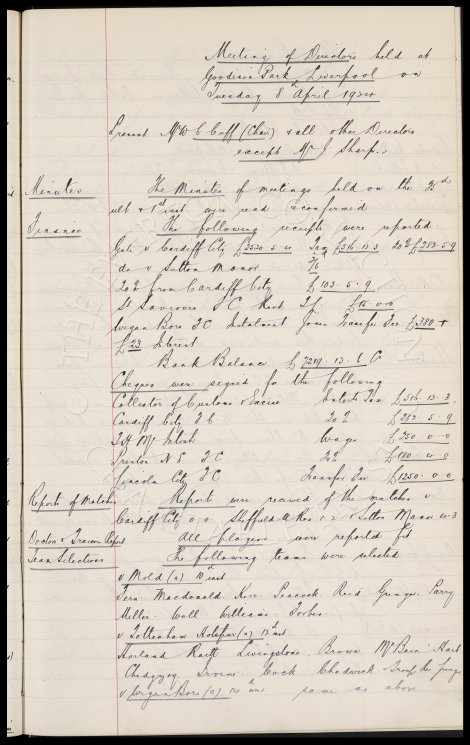 Meeting of Directors held at
Goodison Park Liverpool on
Tuesday 8th April 1924
Present Mr W C Cuff (Chair) & all other Directors
except Mr J Sharp.
Minutes The Minutes of meetings held on the
ult & 1st inst were read & confirmed
Finance The following receipts were reported
Gate v Cardiff City £2520.5.11 Tax £516.13.3 20% £282.5.9
do v Sutton Manor
20% from Cardiff City £103.5.9
St Saviours F C Rent
Wigan Boro F C Instalment Jones Transfer Fee £380 +
£23 Interest
Bank Balance £7219.13.6 Cr
Cheques were signed for the following
Collector of Customs & Excise Ents Tax £516.13.3
Cardiff City F C 20% £282.5.9
T H McIntosh Wages £250.0.0
Preston N E F C £180.4.0
Lincoln City F C Transfer Fee £1250.0.0
Reports of Matches Reports were received of the matches v
Cardiff City 0.0 Sheffield U Res 1.2 & Sutton Manor 4.3
Doctor & Trainers Report All players were reported fit
Team Selections The following teams were selected
v Mold (a) 10th inst
Fern Macdonald Kerr Peacock Reid Grunges Parry
Miller Wall Williams Forbes
v Tottenham Hotspur (a) 12th inst
Harland Raitt Livingstone Brown McBain Hart
Chedgzoy Irvine Cock Chadwick
v Wigan Boro (a) 14th inst same as above